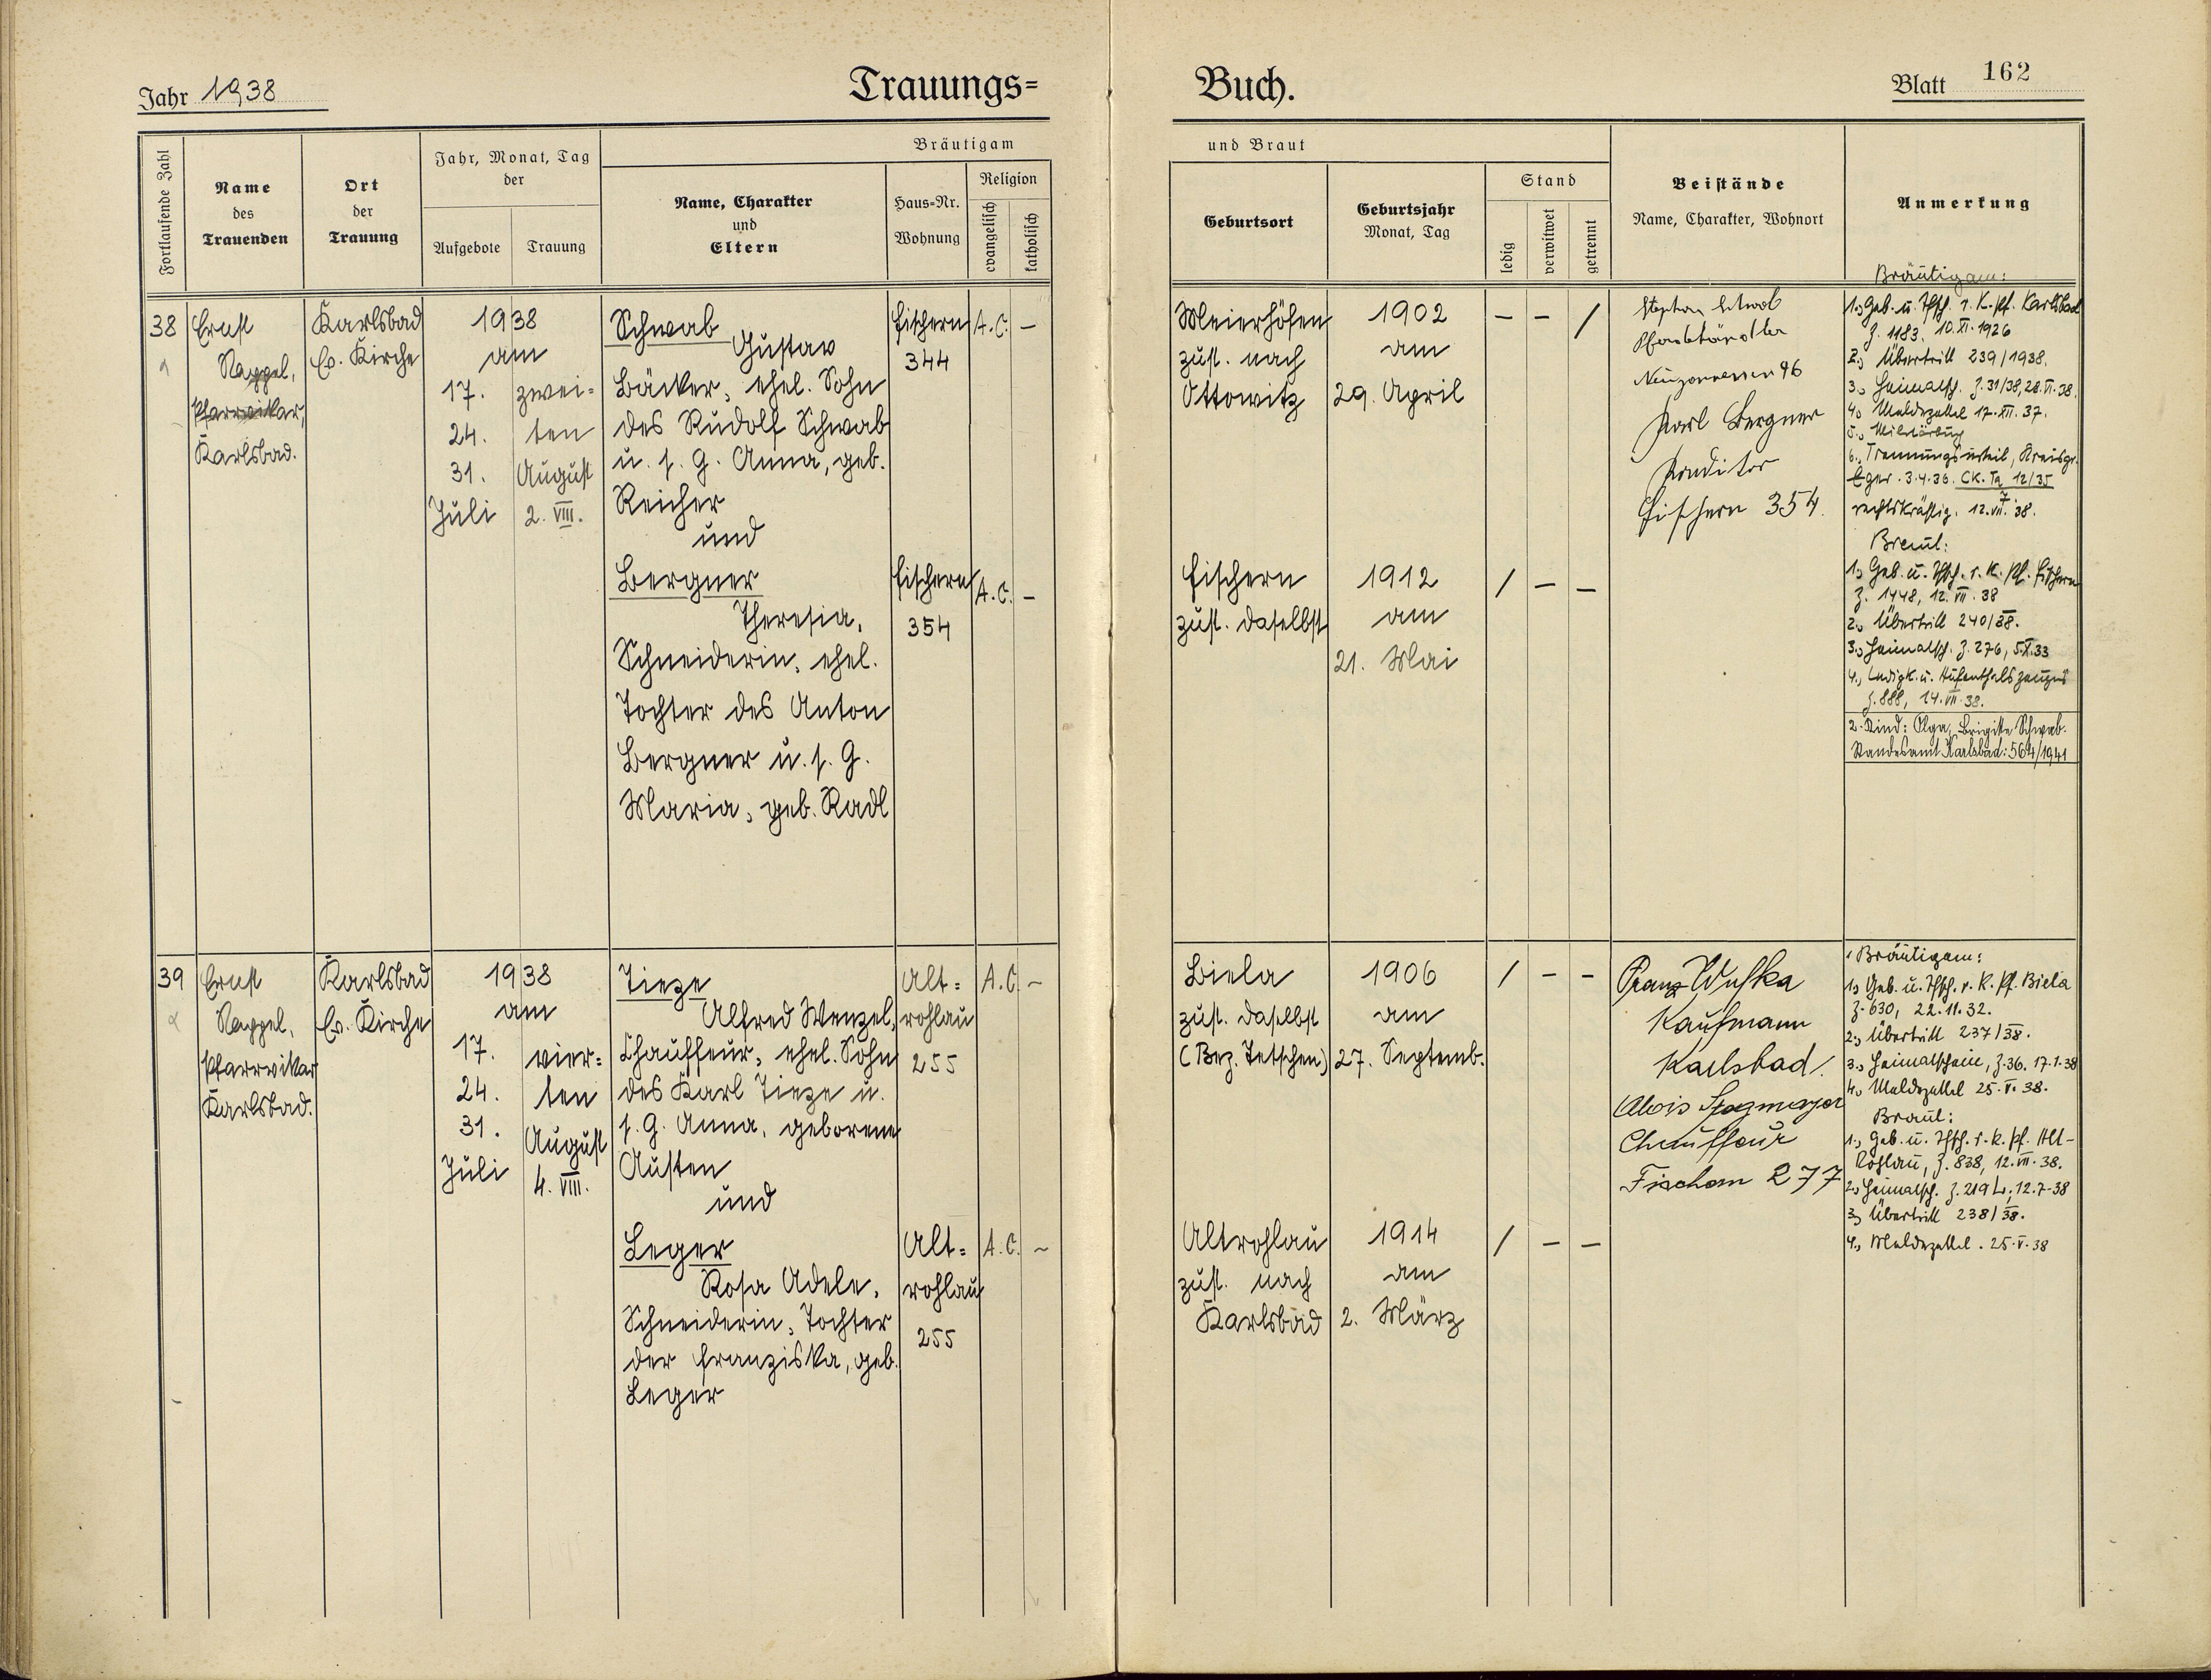 Jahr 1938
Trauungs=
Buch.
Blatt 162
Fortlaufende Zahl
Name
des
Trauenden
Ort
der
Trauung
Jahr, Monat, Tag
der
Aufgebote
Trauung
Bräutigam
Name, Charakter
und
Eltern
Haus=Nr.
Wohnung
Religion
evangelisch
katholisch
und Braut
Geburtsort
Geburtsjahr
Monat, Tag
Stand
ledig
verwitwet
getrennt
Beistände
Name, Charakter, Wohnort
Anmerkung
38
Ernst
Nappel,
Pfarrvikar,
Karlsbad.
Karlsbad
Ev. Kirche
1938
am
17.
24.
31.
Juli
zwei=
ten
August
2. VIII.
Schwab
Gustav
Bäcker, ehel. Sohn
des Rudolf Schwab
u. s. G. Anna, geb.
Reicher
und
Bergner
Theresia,
Schneiderin, ehel.
Tochter des Anton
Bergner u. s. G.
Maria, geb. Radl
Fischern
344
A.C. –
Fischern
354
A.C. –
Meierhöfen
zust. nach
Ottowitz
1902
am
29. April
– – /
Fischern
zust. daselbst
1912
am
21. Mai
/ – –
Karl Bergner
Konditor
Fischern 354.
Bräutigam:
1.) Geb. u. Tfsch. r. k. Pf. Karlsbad
Z. 1183, 10.XI.1926
2.) Übertritt 239/1938.
3.) Heimatsch. Z. 31/38, 28.VI.38.
4.) Meldezettel 17.XII.37.
5.)
6.) Trennungsurteil, Kreisger.
Eger. 3.4.36. CK. Ta 12/35
7
rechtskräftig. 12.VII.38.
Braut:
1.) Geb. u. Tfsch. r. k. Pf. Fischern
Z. 1448, 12.VII.38
2.) Übertritt 240/38.
3.) Heimatsch. Z. 276, 5.X.33
4.) Ledigk. u. Aufenthaltszeugnis
Z. 888, 14.VII.38.
2. Kind: Olga, Brigitte Schwab.
Standesamt Karlsbad: 564/1941
39
Ernst
Nappel,
Pfarrvikar
Karlsbad.
Karlsbad
Ev. Kirche
1938
am
17.
24.
31.
Juli
vier=
ten
August
4. VIII.
Tieze
Alfred Wenzel,
Chauffeur, ehel. Sohn
des Karl Tieze u.
s. G. Anna, geborene
Austen
und
Leger
Rosa Adele,
Schneiderin, Tochter
der Franziska, geb.
Leger
Alt=
rohlau
255
A.C. –
Alt=
rohlau
255
A.C. –
Biela
zust. daselbst
(Bez. Tetschen)
1906
am
27. Septemb.
/ – –
Altrohlau
zust. nach
Karlsbad
1914
am
2. März
/ – –
Franz
Kaufmann
Karlsbad.
Alois
Chauffeur
Fischern 277
Bräutigam:
1.) Geb. u. Tfsch. r. k. Pf. Biela
Z. 630, 22.11.32.
2.) Übertritt 237/38.
3.) Heimatschein, Z. 36. 17.1.38
4.) Meldezettel 25.V.38.
Braut:
1.) Geb. u. Tfsch. r. k. Pf. Alt-
rohlau, Z. 838, 12.VII.38.
2.) Heimatsch. Z. 219 L; 12.7.38
3.) Übertritt 238/38.
4.) Meldezettel. 25.V.38